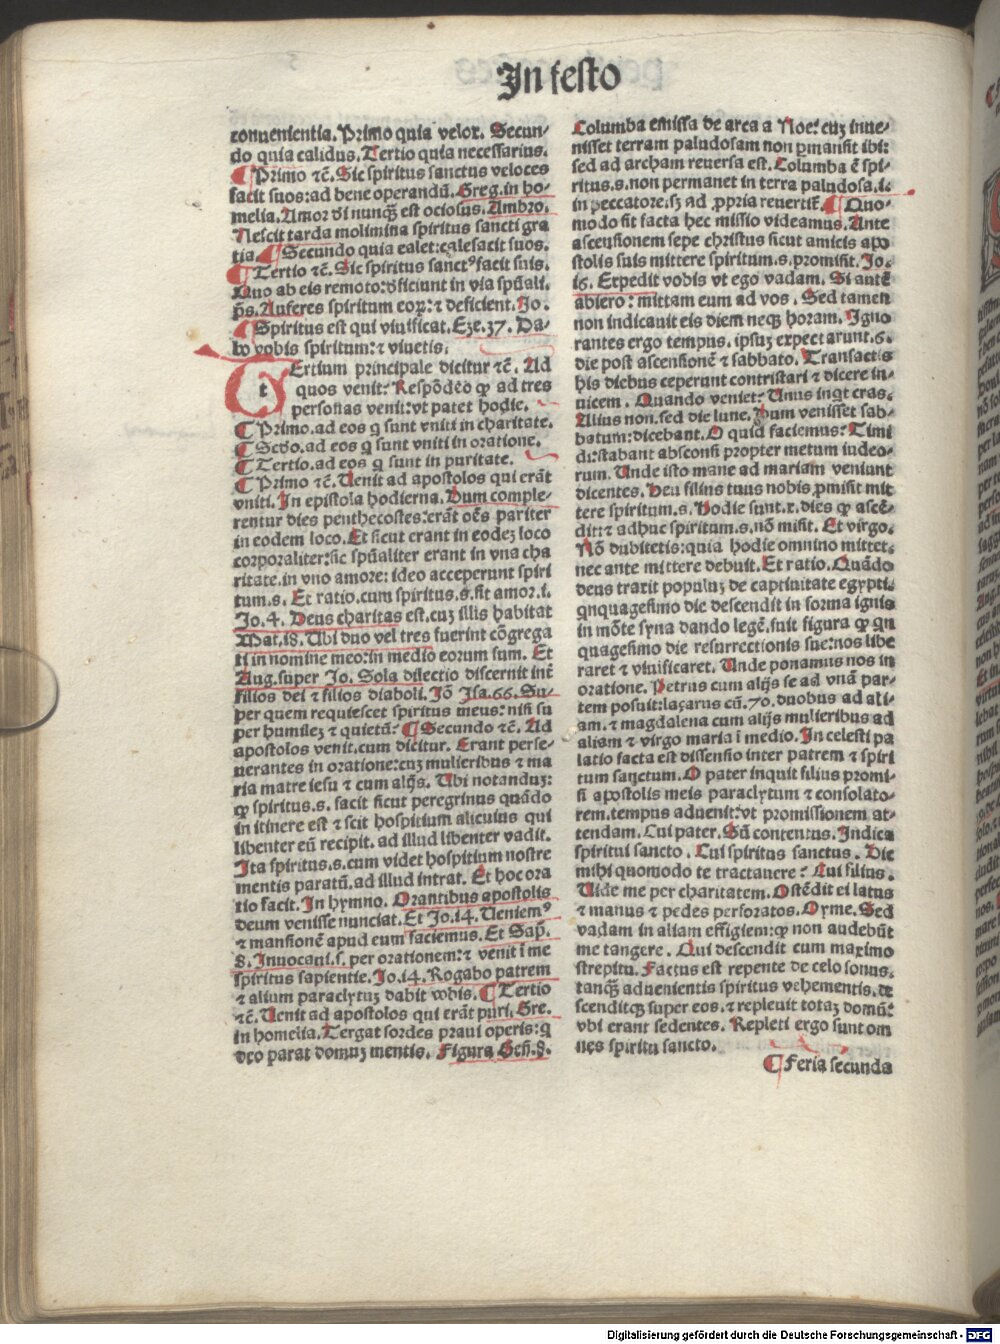 In festo
conuenientia. Primo quia velox. Secun-
do quia calidus. Tertio quia necessarius.
¶ Primo ⁊c̃. Sic spiritus sanctus veloces
facit suos: ad bene operandū. Greg. in ho-
melia. Amor dī nunq̄ est ociosus. Ambro.
Nescit tarda molimina spiritus sancti gra
tia. ¶ Secundo quia calet: calefacit suos.
¶ Tertio ⁊c̃. Sic spiritus sanctꝰ facit suis.
Quo ab eis remoto: dificiunt in via spūali.
p̄s. Auferes spiritum eoꝝ: ⁊ deficient. Jo.
¶ Spiritus est qui viuificat. Eze. 37. Da-
bo vobis spiritum: ⁊ viuetis.
TErtium principale dicitur ⁊c̃. Ad
quos venit: Respōdēo ꝙ ad tres
personas venit: vt patet hodie.
¶ Primo. ad eos q̄ sunt vniti in charitate.
¶ Scd̄o. ad eos q̄ sunt vniti in oratione.
¶ Tertio. ad eos q̄ sunt in puritate.
¶ Primo ⁊c̃. Uenit ad apostolos qui erāt
vniti. In epistola hodierna. Dum comple-
rentur dies penthecostes: erāt oēs pariter
in eodem loco. Et sicut erant in eodeȝ loco
corporaliter: sic spūaliter erant in vna cha
ritate. in vno amore: ideo acceperunt spiri
tum. s. Et ratio. cum spiritus. s. sit amor. i.
Jo. 4. Deus charitas est. cuȝ illis habitat
Mat. 18. Ubi duo vel tres fuerint cōgrega
ti in nomine meo: in medio eorum sum. Et
Aug. super Jo. Sola dilectio discernit int̄
filios dei ⁊ filios diaboli. Jō Isa. 66. Su-
per quem requiescet spiritus meus: nisi su
per humileȝ ⁊ quietū: ¶ Secundo ⁊c̃. Ad
apostolos venit. cum dicitur. Erant perse-
uerantes in oratione: cuȝ mulieribus ⁊ ma
ria matre iesu ⁊ cum alijs. Ubi notanduȝ:
ꝙ spiritus. s. facit sicut peregrinus quādo
in itinere est ⁊ scit hospitium alicuius qui
libenter eū recipit. ad illud libenter vadit.
Ita spiritus. s. cum videt hospitium nostre
mentis paratū. ad illud intrat. Et hoc ora
tio facit. In hymno. Orantibus apostolis
deum venisse nunciat. Et Jo. 14. Ueniemꝰ
⁊ mansionē apud eum faciemus. Et Sap̄.
8. Inuocaui. s. per orationem: ⁊ venit ī me
spiritus sapientie. Jo. 14. Rogabo patrem
⁊ alium paraclytuȝ dabit vobis. ¶ Tertio
⁊c̃. Uenit ad apostolos qui erāt puri. Gre.
in homelia. Tergat sordes praui operis: q̄
deo parat domuȝ mentis. Figura Geñ. 8.
Columba emissa de arca a Noe: cuȝ inue-
nisset terram paludosam non ꝑmansit ibi:
sed ad archam reuersa est. Columba ē spi-
ritus. s. non permanet in terra paludosa. i.
in peccatore. sȝ ad ꝓpria reuertit̄. ¶ Quo-
modo sit facta hec missio videamus. Ante
ascensionem sepe christus sicut amicis apo
stolis suis mittere spiritum. s. promisit. Jo.
16. Expedit vobis vt ego vadam. Si autē
abiero: mittam eum ad vos. Sed tamen
non indicauit eis diem neqꝫ horam. Igno
rantes ergo tempus. ipsuȝ expectarunt. 6.
die post ascensionē ⁊ sabbato. Transactis
his diebus ceperunt contristari ⁊ dicere in-
uicem. Quando veniet: Unus inqt cras.
Alius non. sed die lune. Dum venisset sab-
batum: dicebant. O quid faciemus: Timi
di: stabant absconsi propter metum iudeo-
rum. Unde isto mane ad mariam veniunt
dicentes. Heu filius tuus nobis ꝓmisit mit
tere spiritum. s. Hodie sunt. x. dies ꝙ ascē-
dit: ⁊ adhuc spiritum. s. nō misit. Et virgo.
Nō dubitetis: quia hodie omnino mittet.
nec ante mittere debuit. Et ratio. Quādo
deus traxit populuȝ de captiuitate egypti.
qnquagesimo die descendit in forma ignis
in mōte syna dando legē. fuit figura ꝙ qn
quagesimo die resurrectionis sue: nos libe
raret ⁊ viuificaret. Unde ponamus nos in
oratione. Petrus cum alijs se ad vnā par-
tem posuit: laȝarus cū. 70. duobus ad ali-
am. ⁊ magdalena cum alijs mulieribus ad
aliam ⁊ virgo maria ī medio. In celesti pa
latio facta est dissensio inter patrem ⁊ spiri
tum sanctum. O pater inquit filius promi-
si apostolis meis paraclytum ⁊ consolato-
rem. tempus aduenit: vt promissionem at-
tendam. Cui pater. Sū contentus. Indica
spiritui sancto. Cui spiritus sanctus. Dic
mihi quomodo te tractauere: Cui filius.
Uide me per charitatem. Ostēdit ei latus
⁊ manus ⁊ pedes perforatos. Oyme. Sed
vadam in aliam effigiem: ꝙ non audebūt
me tangere. Qui descendit cum maximo
strepitu. Factus est repente de celo sonus.
tanqꝫ aduenientis spiritus vehementis. de
scenditqꝫ super eos. ⁊ repleuit totaȝ domū:
vbi erant sedentes. Repleti ergo sunt om
nes spiritu sancto.
¶ Feria secunda
Digitalisierung gefördert durch die Deutsche Forschungsgemeinschaft - DFG